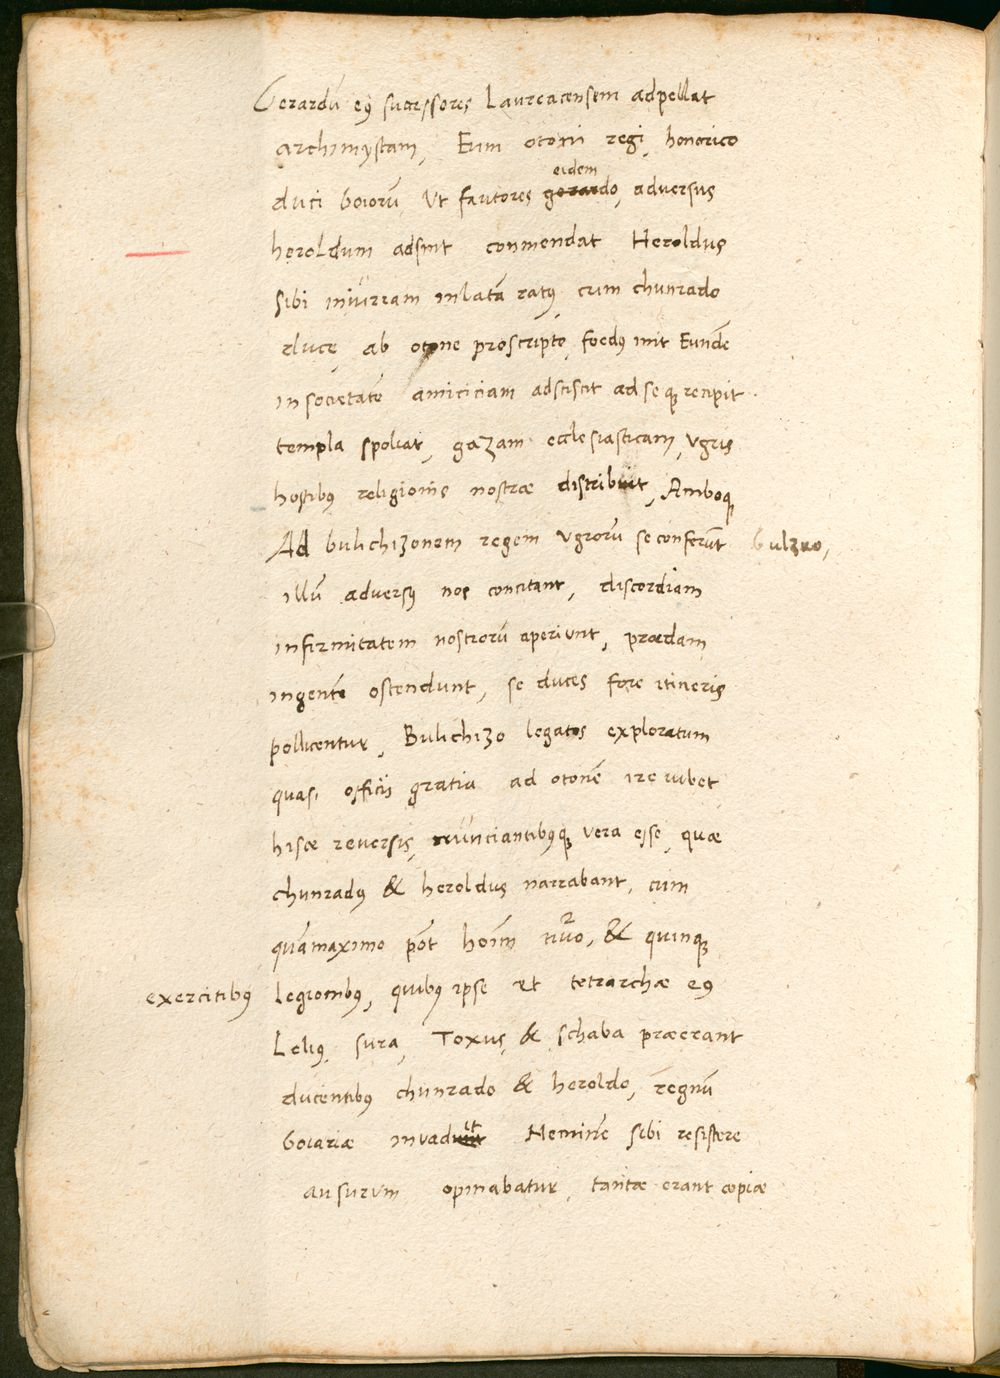 Gerardū eꝰ successores Laureacensem adpellat
archimystam, Eum otoni regi, honorico
duci boiorū, Ut fautores gerardo, eidem adversus
heroldum adsint conmendat Heroldus
sibi iniuriam inlatā ratꝰ, cum chunrado
duce, ab otone proscripto, foedꝰ init Eundē
in societatē amiciciam adsciscit ad se qꝫ recipit
templa spoliat, gazam ecclesiasticam, Ugris
hostibus religionis nostræ distribuit, Amboqꝫ
Ad bulichizonem regem Ugrorū se conferūt bulzko,
illū adversꝰ nos concitant, discordiam
infirmitatem nostrorū aperiunt, prædam
ingentē ostendunt, se duces fore itineris
pollicentur, Bulichizo legatos exploratum
quasi officii gratia ad otonē ire iubet
hisce reversis, nunciantibꝰqꝫ vera esse, quæ
chunradꝰ & heroldus narrabant, cum
quāmaximo pōt hoīm nūo, & quinqꝫ
exercitibꝰ legionibꝰ, quibꝰ ipse et tetrarchæ eꝰ
Leliꝰ, sura, Toxus, & schaba præerant
ducentibꝰ chunrado & heroldo, regnū
boiariæ invadit Neminē sibi resistere
ausurum opinabatur, tantæ erant copiæ